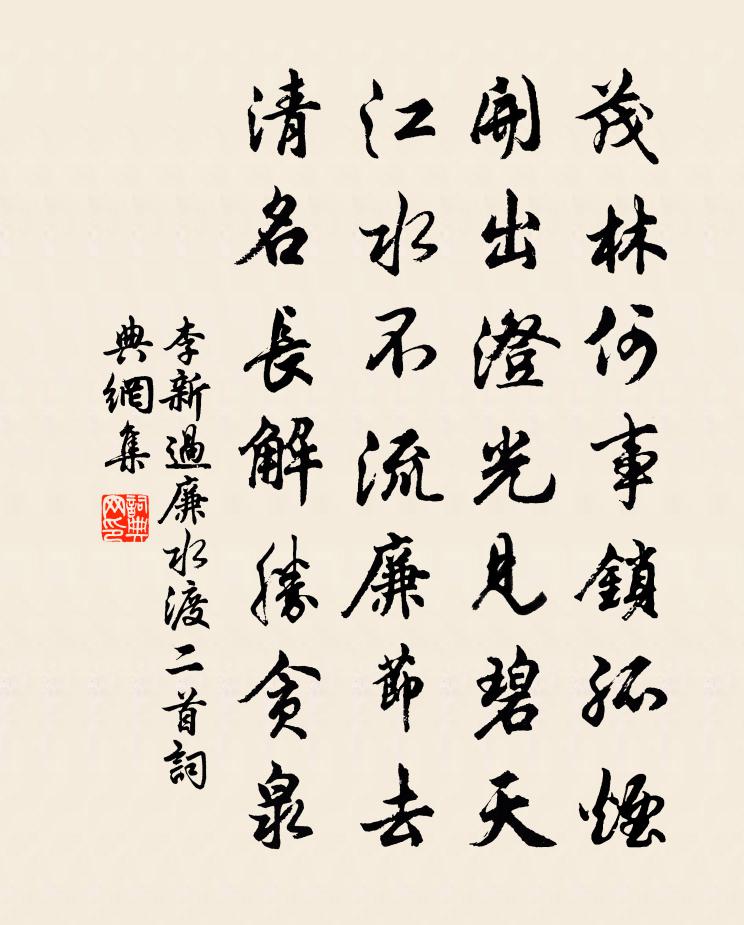 茂林何事鎖孤煙
開出澄光見碧天
江水不流廉節去
清名長解勝貪泉
李新過廉水渡二首詞
典網集
詞典網印